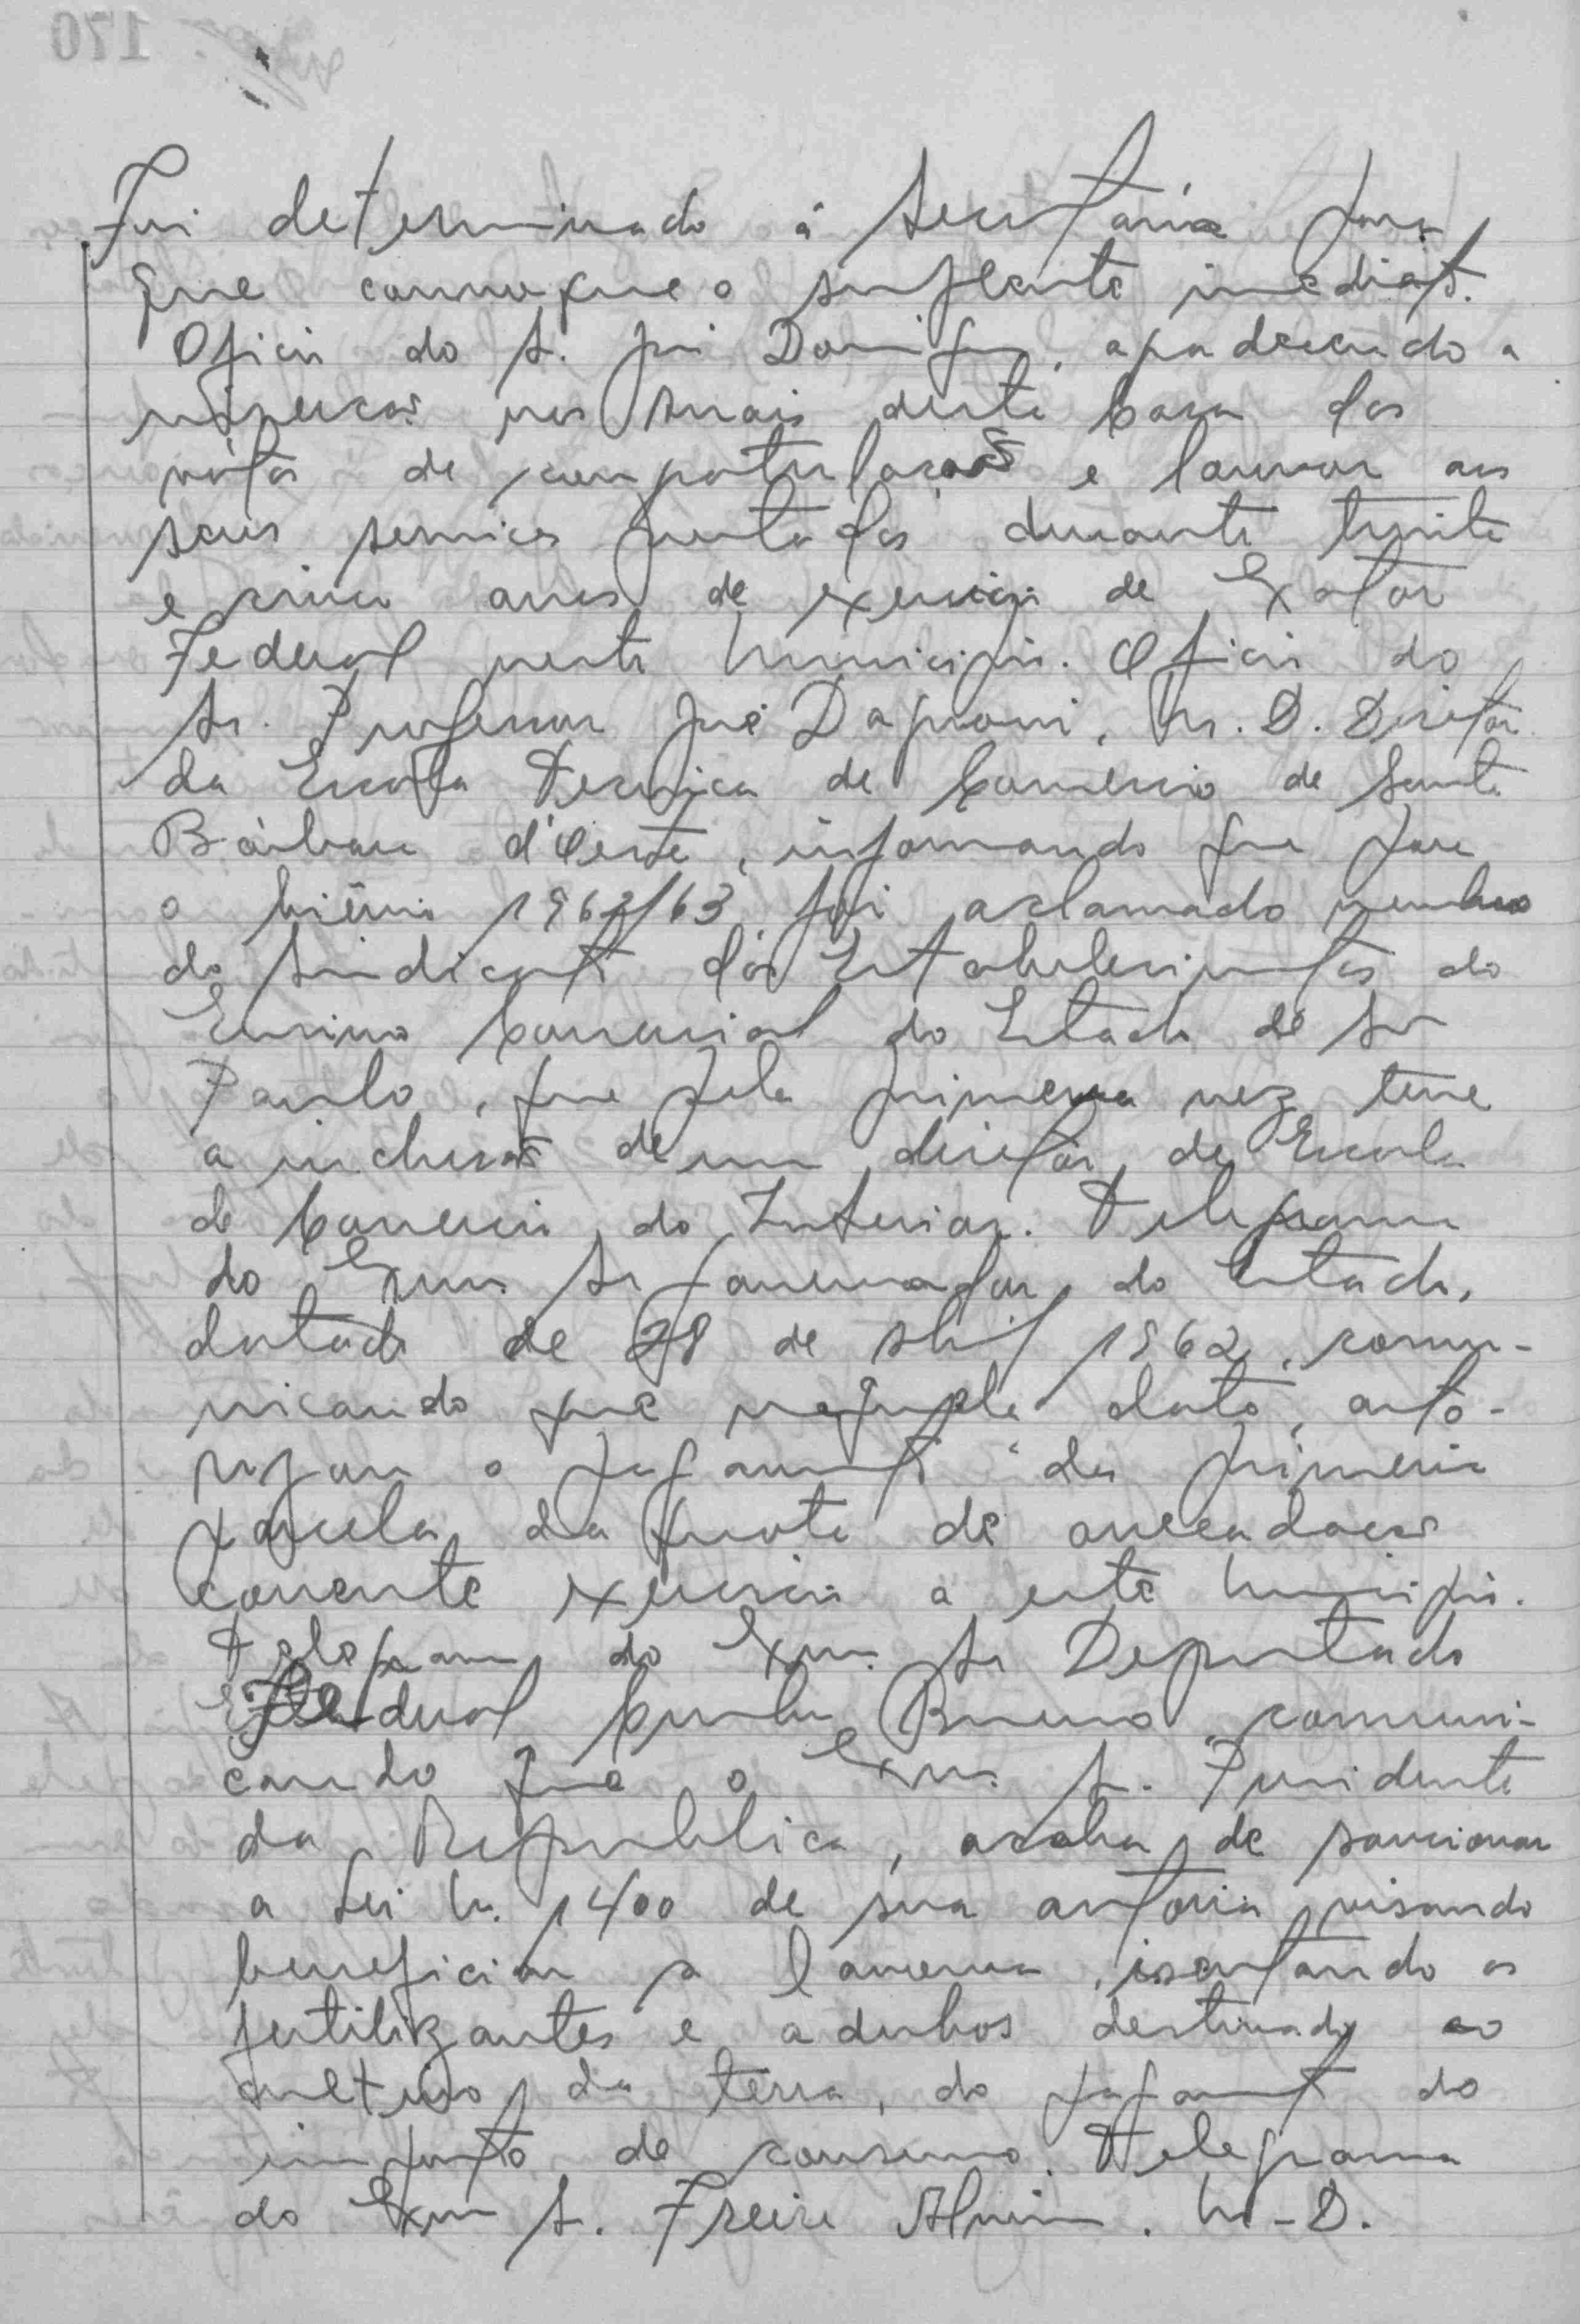 Foi determinado á Secretária para
que convoque o suplente imediato.
Oficio do Sr. José Domingos, agradecendo a
inserção nos Anais desta Casa dos
votos de congratulações e louvor aos
seus serviços prestados durante trinta
e cinco anos de exercicio de Exator
Federal neste Municipio. Oficio do
Sr. Professor José Dagnoni, M. D. Diretor
da Escola Tecnica de Comercio de Santa
Bárbara d'Oeste, informando que para
o biênio 1962/63, foi aclamado membro
do Sindicato dos Estabelecimentos do
Ensino Comercial do Estado de São
Paulo, que pela primeira vez teve
a inclusão de um diretor de Escola
de Comercio do Interior. Telegrama
do Exmo Sr Governador do Estado,
datado de 28 de abril 1962, comu-
nicando que naquela data, auto-
rizou o pagamento da primeira
parcela da quota de arrecadação
corrente exercicio a este Municipio.
Telegrama do Exmo. Sr Deputado
Federal Cunha Bueno, comuni-
cando que o Exmo. Sr. Presidente
da Republica, acaba de sancionar
a Lei n. 1400 de sua autoria visando
beneficiar a lavoura, isentando os
fertilizantes e adubos destinado ao
cultivo da terra, do pagamento do
imposto de consumo. Telegrama
do Exmo Sr. Freire Alvim. M-D.